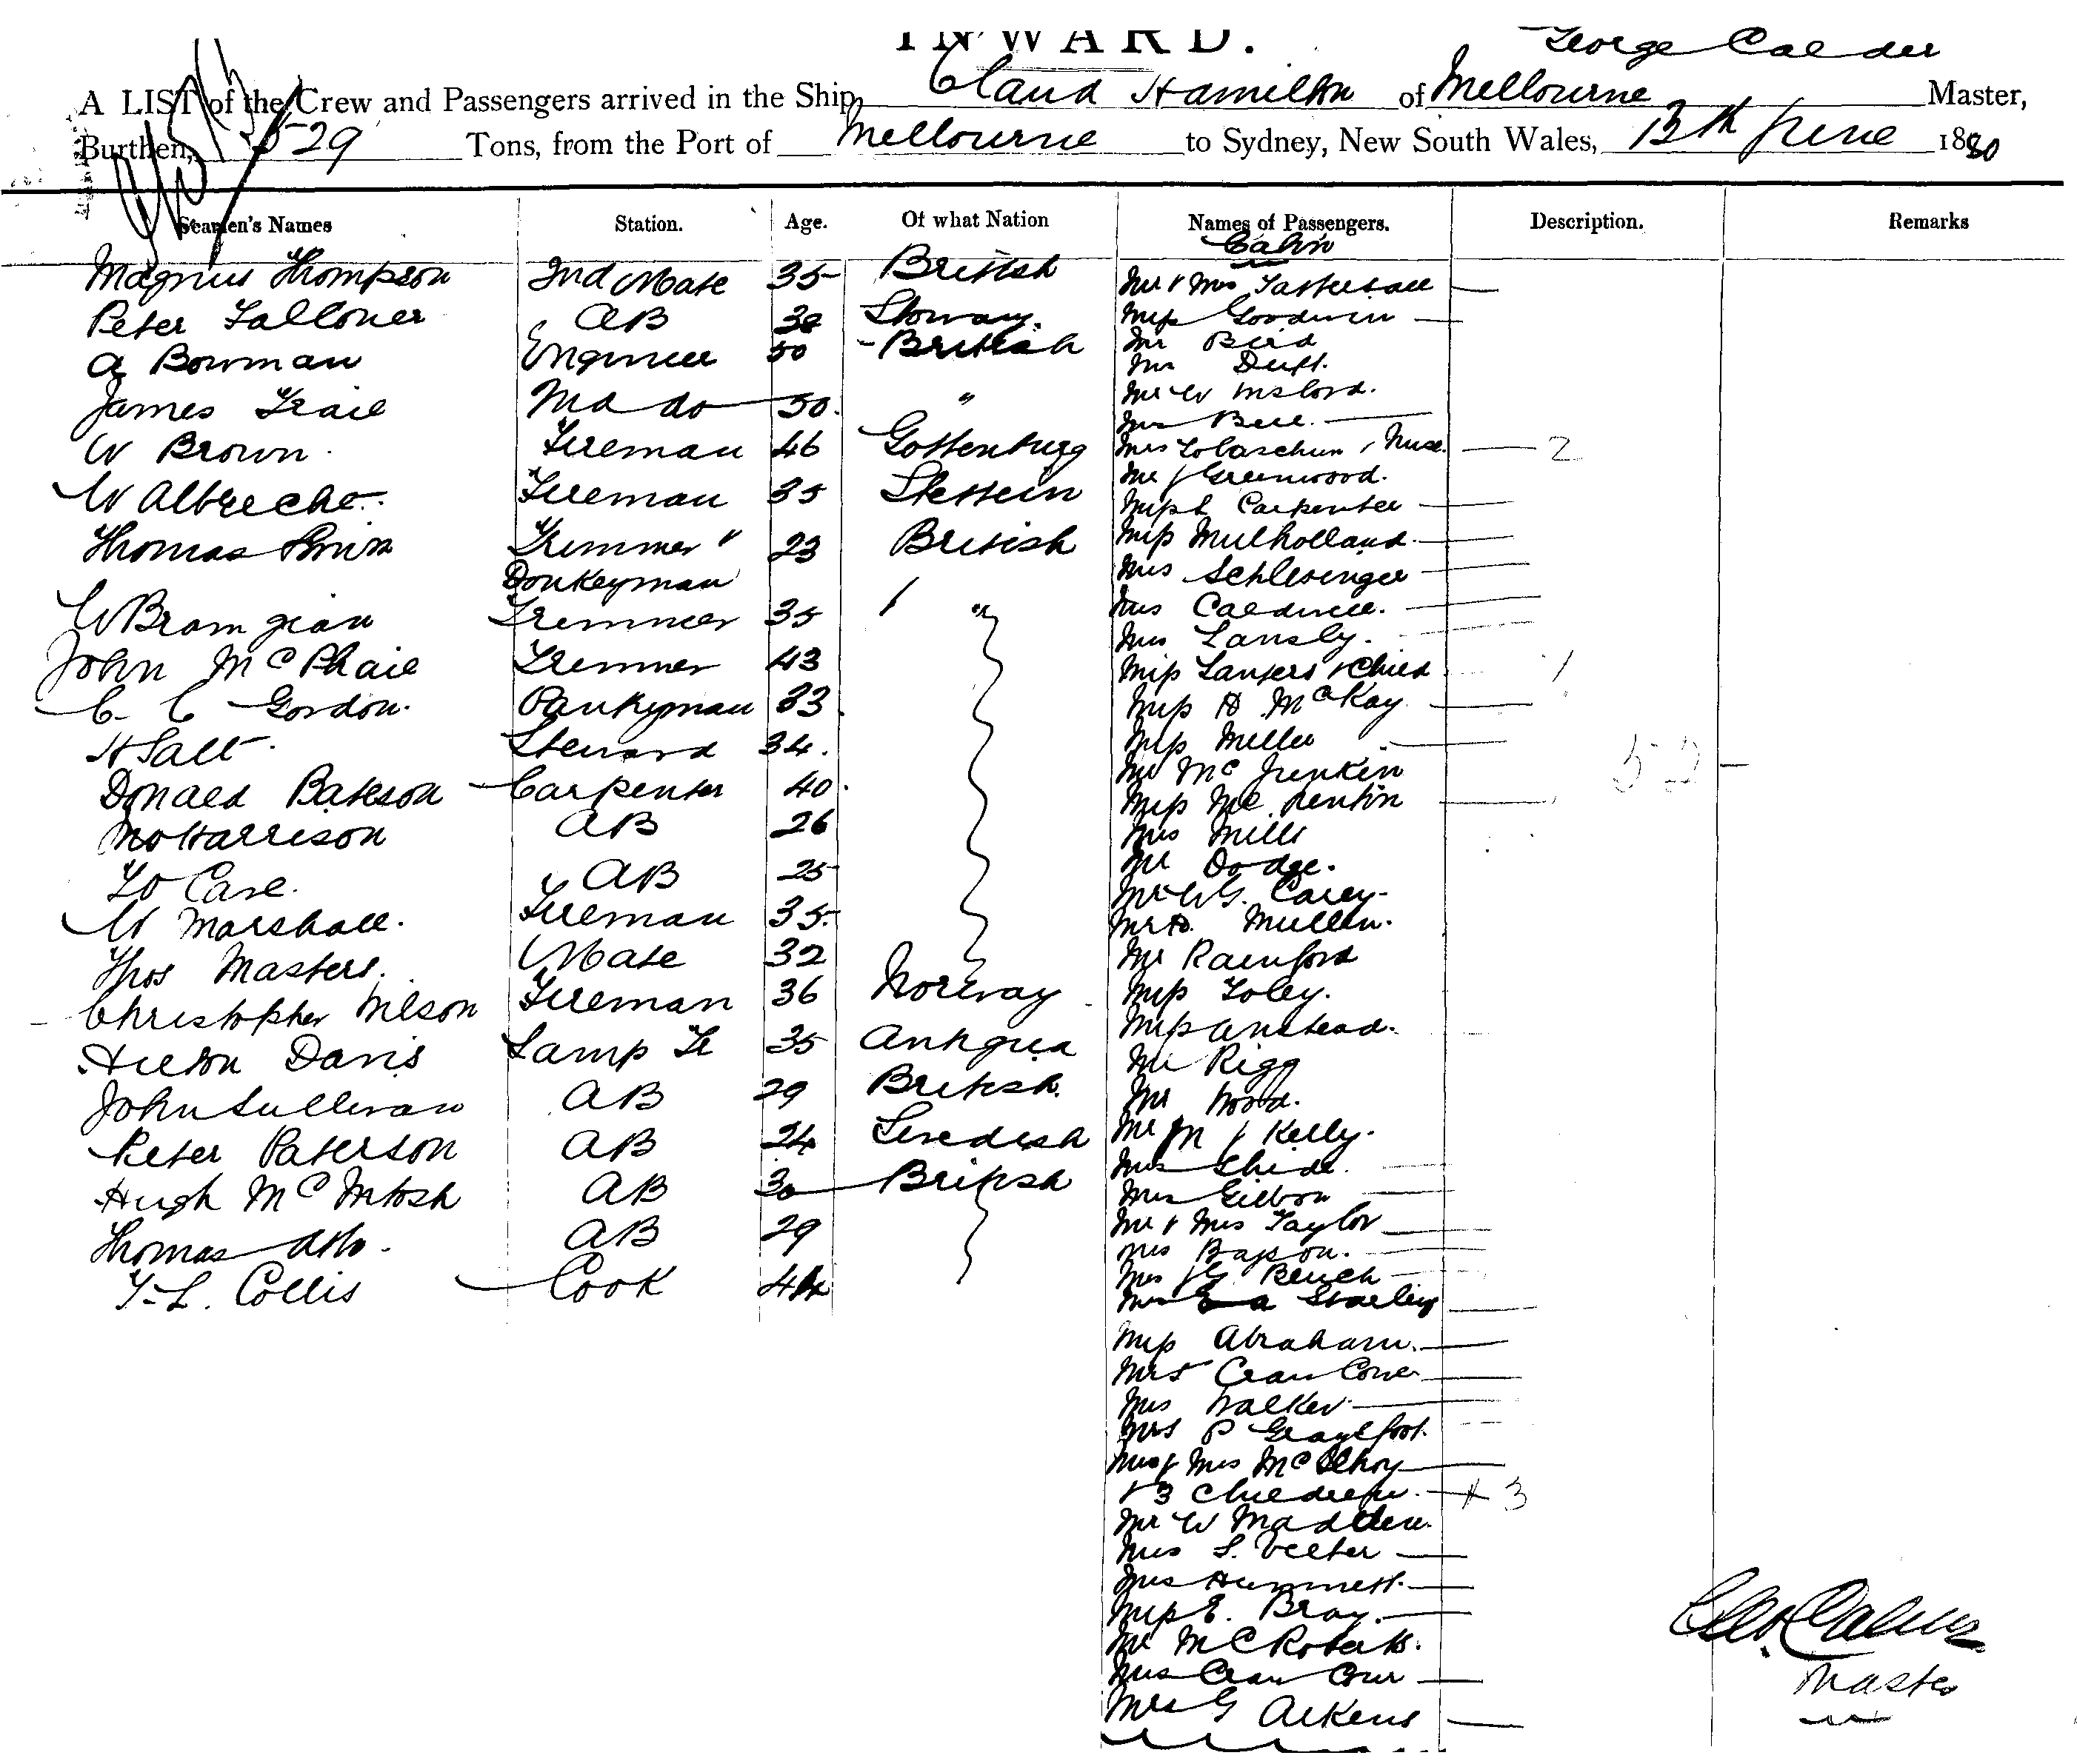 INWARD.
George Calder
A LIST of the Crew and Passengers arrived in the Ship, Claud Hamilton of Melbourne Master,
Burthen, 529 Tons, from the Port of Melbourne to Sydney, New South Wales, 13th June 1880
Seamen's Names Station. Age. Of what Nation Names of Passengers. Description. Remarks
Cabin
Magnus Thompson 2nd Mate 35 British Mr & Mrs Tattersall
Peter Falloner AB 38 Miss Goodwin
A Bowman Engineer 50 British Mr Bird
Mr Duff.
James Traill 2nd do 50. " Mr W
Mrs Bell.
W Brown. Fireman 46 Gottenburg Mrs & Nurse. 2
Mr J Greenwood.
W Albrecht. Fireman 35 Stettein Miss L Carpenter
Thomas Fireman Trimmer " 23 British Miss Mulholland.
Donkeyman Mrs Schlesinger
W Bramgian Trimmer 35 " Mrs Caldwell.
Mrs Lansly.
John McPhail Trimmer 43 Miss Sangers & Child 1
C C Gordon. Pantryman 33. Miss H McKay
H Salt. Steward 34. Miss Miller
Mr McJunkin 52
Donald Bateson Carpenter 40. Miss Mc
Harrison AB 26 Mrs Mills
Mr Dodge.
Case. AB 25 Mr W G. Carey
W Marshall. Fireman 35. Mr D. Mullen.
Thos Masters. Mate 32 Mr Rainford
Christopher Nilson Fireman 36 Norway Miss Foley.
Miss Anstead.
Hilton Davis Lamp Tr 35 Antigua Mr Rigg
John Sullivan AB 29 British. Mr Wood.
Peter Paterson AB 24 Swedish Mr M J Kelly.
Mrs
Hugh McIntosh AB 30 British Mrs Gibbon
Mr & Mrs Taylor
Thomas AB 29 Mrs
T. L. Collis Cook 44 Mrs J G.
Mrs A Starling
Miss Abraham.
Mrs Cran Cour
Mrs Walker
Mrs P
Mr & Mrs McElhoy
& 3 Children. + 3
Mr W Madden.
Mrs S. Veeter
Mrs Hummett.
Miss E. Bray.
Mr McRoberts.
Mrs Cran Cour
Mrs G Aikens
Geo. Calder
Master